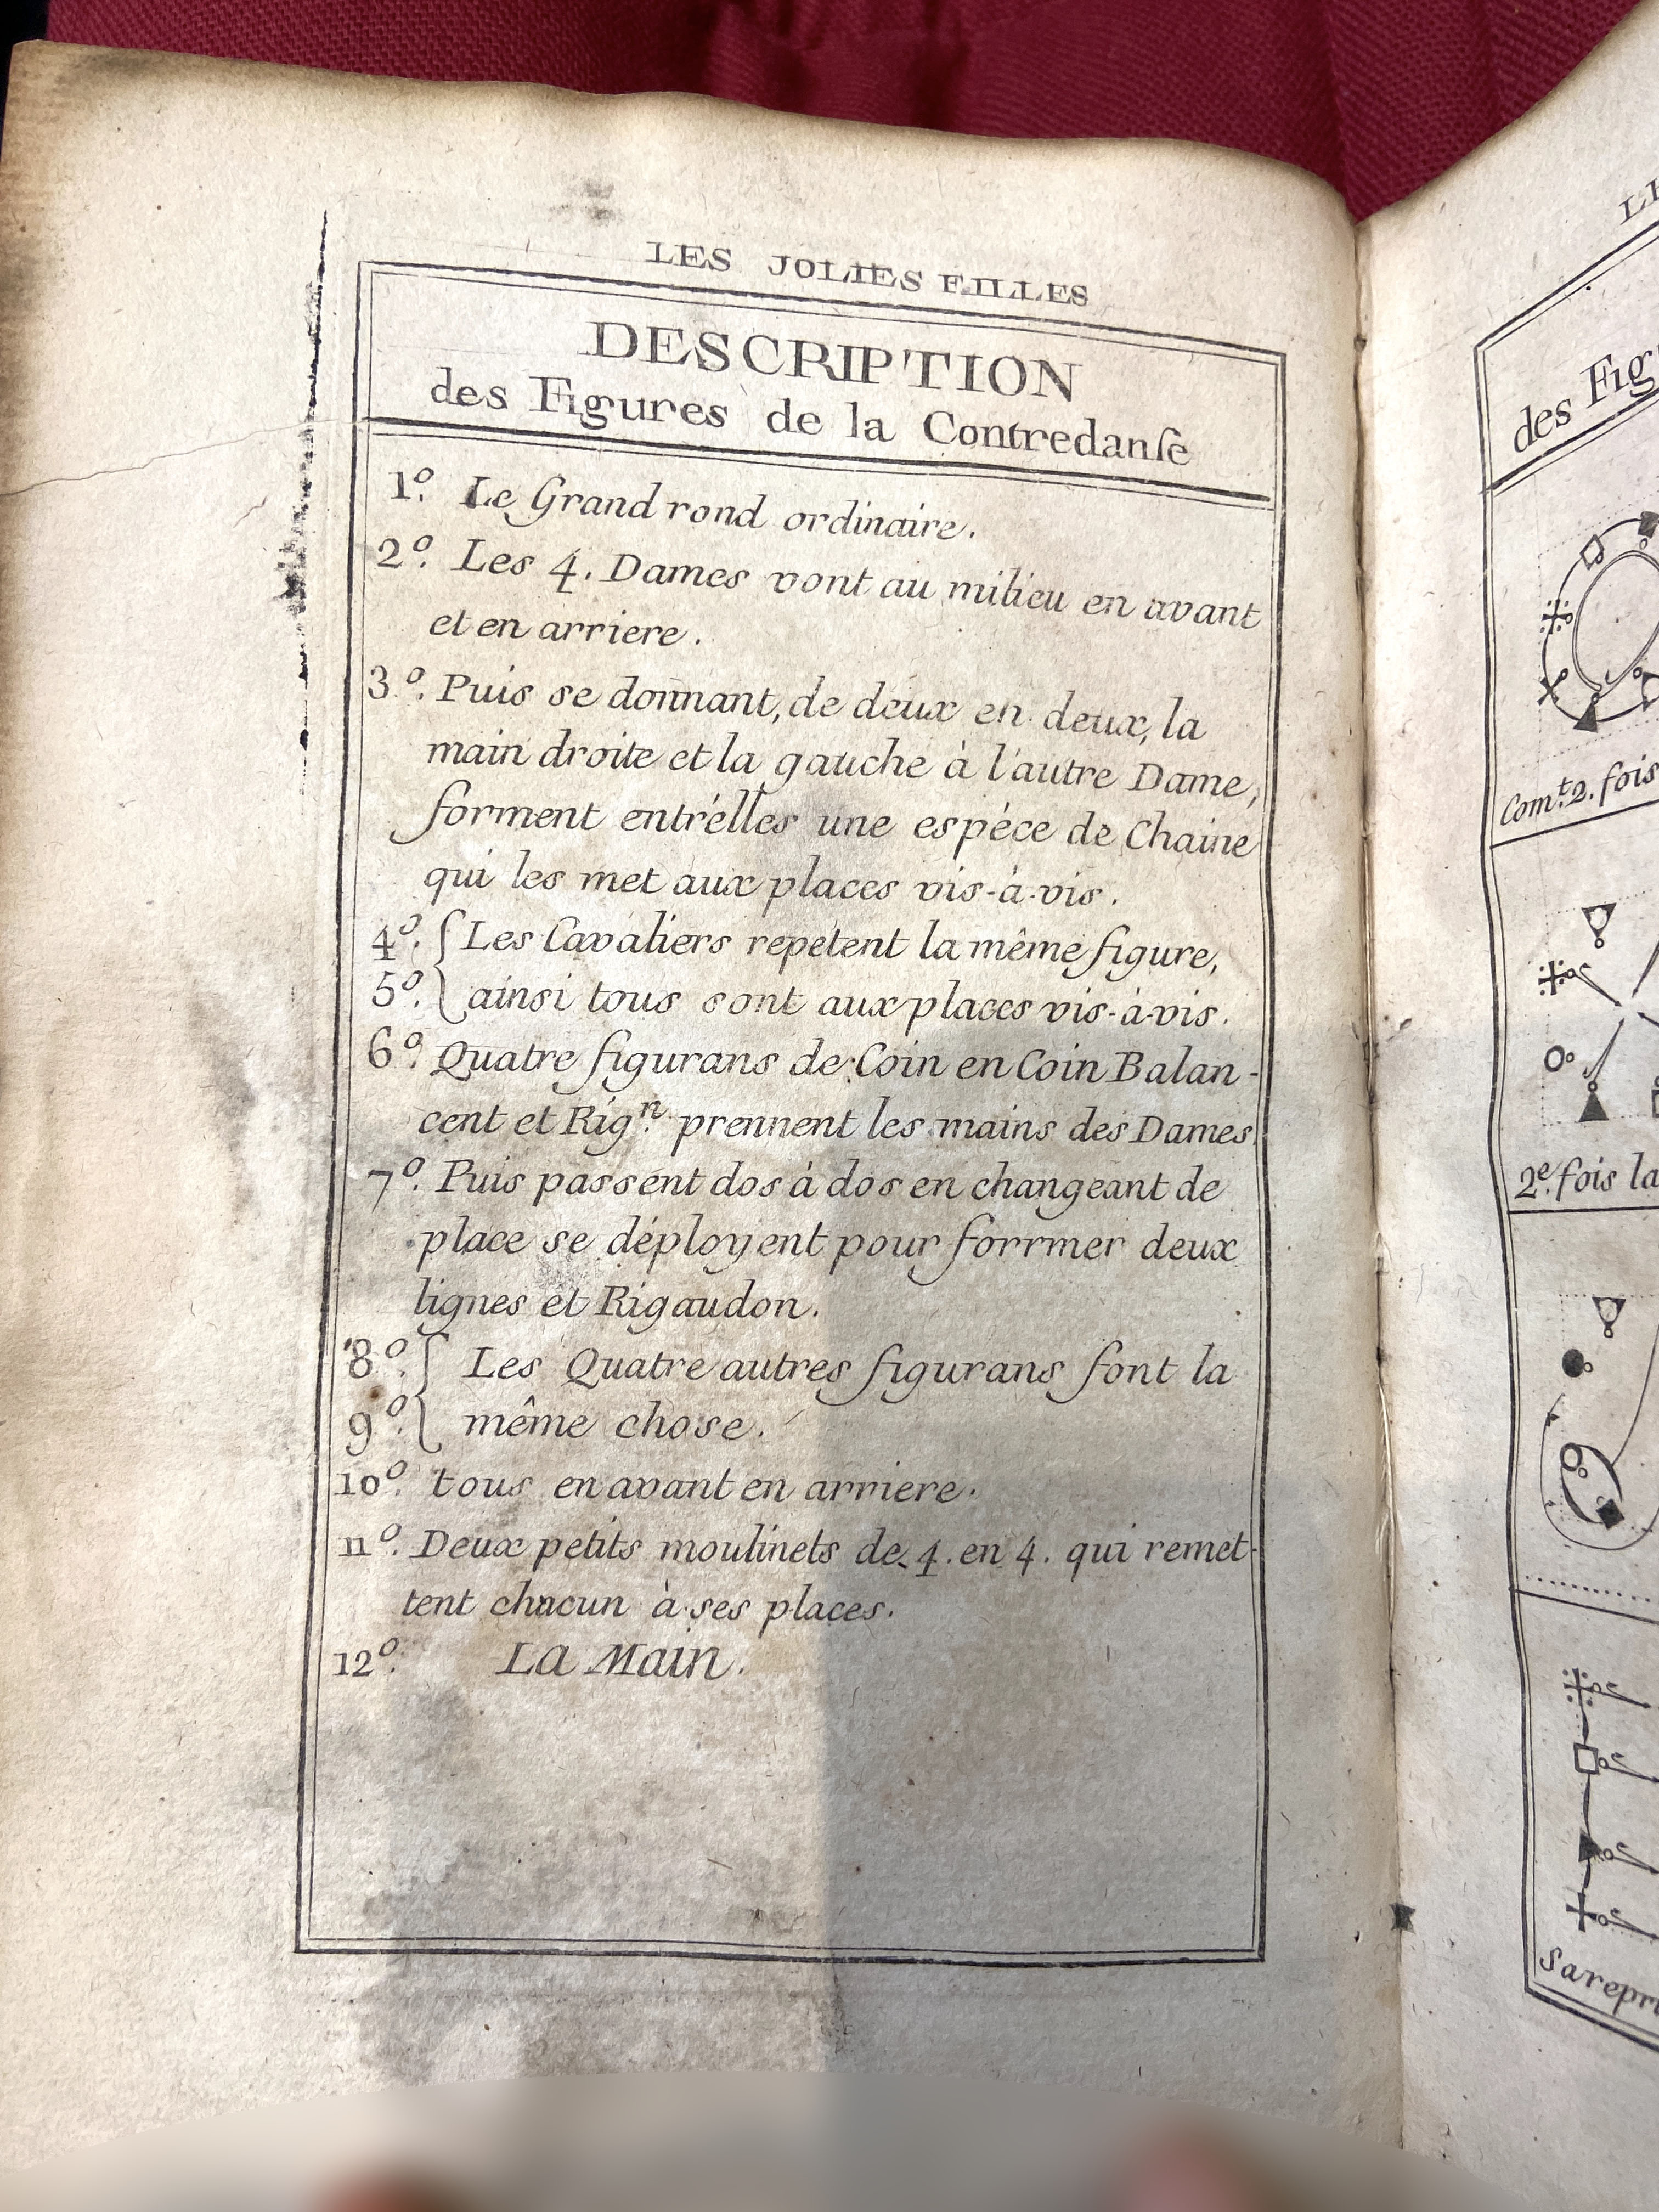 LES JOLIES FILLES
DESCRIPTION
des Figures de la Contredanſe
1º. Le Grand rond ordinaire.
2º. Les 4. Dames vont au milieu en avant
et en arriere.
3º. Puis se donnant, de deux en deux, la
main droite et la gauche à l'autre Dame,
forment entr'élles une espéce de Chaine
qui les met aux places vis-à-vis.
4º. { Les Cavaliers repetent la même figure,
5º. { ainsi tous sont aux places vis-à-vis.
6º. Quatre figurans de Coin en Coin Balan-
cent et Rigⁿ. prennent les mains des Dames
7º. Puis passent dos à dos en changeant de
place se déployent pour forrmer deux
lignes et Rigaudon.
8º. { Les Quatre autres figurans font la
9º. { même chose.
10º. tous en avant en arriere.
11º. Deux petits moulinets de 4. en 4. qui remet-
tent chacun à ses places.
12º. La Main.
des Fig
Com.ᵗ 2. fois
2ᵉ. fois la